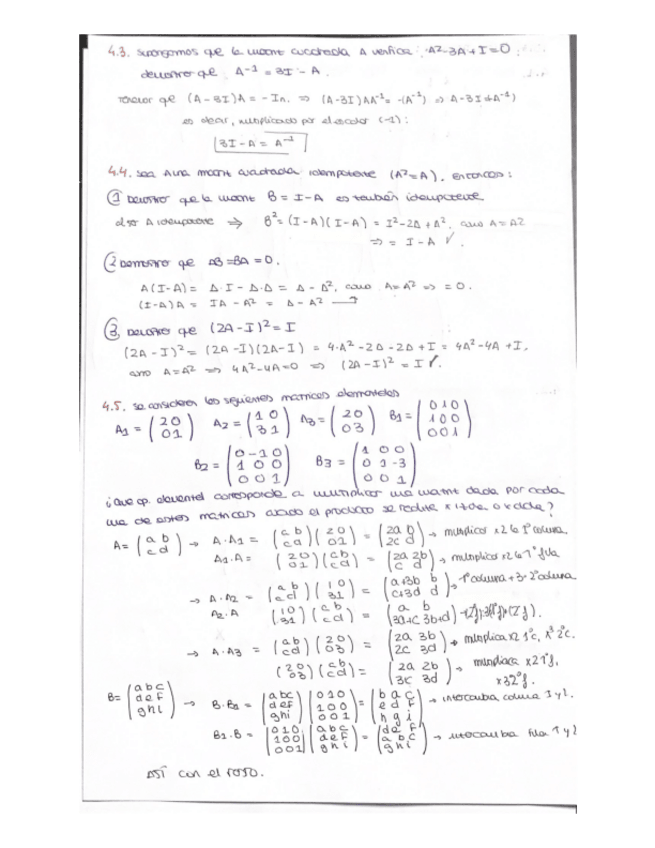 4.3. Supongamos que la matriz cuadrada A verifica: A²-3A+I=0.
demostrar que A⁻¹ = 3I - A.
(A-3I)A = -In. ⇒ (A-3I)AA⁻¹ = -(A⁻¹) ⇒ A-3I = -(A⁻¹)
es decir, multiplicado por el escalar (-1):
3I-A = A⁻¹
4.4. Sea A una matriz cuadrada idempotente (A²=A), entonces:
① Demostrar que la matriz B = I-A es también idempotente
A idempotente ⇒ B²=(I-A)(I-A) = I²-2A+A², como A=A2
⇒ = I-A ✓.
② Demostrar que AB=BA=0.
A(I-A) = A·I - A·A = A - A², como A=A² ⇒ = 0.
(I-A)A = IA - A² = A - A²
③ Demostrar que (2A-I)²=I
(2A-I)² = (2A-I)(2A-I) = 4·A²-2A-2A+I = 4A²-4A+I,
como A=A² ⇒ 4A²-4A=0 ⇒ (2A-I)² = I ✓.
4.5. Se consideran las siguientes matrices elementales
A1 = (2 0 / 0 1) A2 = (1 0 / 3 1) A3 = (2 0 / 0 3) B1 = (0 1 0 / 1 0 0 / 0 0 1)
B2 = (0 -1 0 / 1 0 0 / 0 0 1) B3 = (1 0 0 / 0 1 -3 / 0 0 1)
¿Que op. elemental corresponde a multiplicar una matriz dada por cada
una de estas matrices cuando el producto se realiza x izda. o x dcha?
A = (a b / c d) → A·A1 = (a b / c d)(2 0 / 0 1) = (2a b / 2c d) → multiplicar x2 la 1ª columna.
A1·A = (2 0 / 0 1)(a b / c d) = (2a 2b / c d) → multiplicar x2 la 1ª fila
→ A·A2 = (a b / c d)(1 0 / 3 1) = (a+3b b / c+3d d) → 1ª columna + 3·2ª columna
A2·A (1 0 / 3 1)(a b / c d) = (a b / 3a+c 3b+d) →
→ A·A3 = (a b / c d)(2 0 / 0 3) = (2a 3b / 2c 3d) → multiplica x2 1ªc, x3 2ªc.
(2 0 / 0 3)(a b / c d) = (2a 2b / 3c 3d) → multiplica x2 1ªf,
x3 2ªf.
B = (a b c / d e f / g h i) → B·B1 = (a b c / d e f / g h i)(0 1 0 / 1 0 0 / 0 0 1) = (b a c / e d f / h g i) → intercambia columna 1 y 2.
B1·B = (0 1 0 / 1 0 0 / 0 0 1)(a b c / d e f / g h i) = (d e f / a b c / g h i) → intercambia fila 1 y 2
ASÍ con el resto.